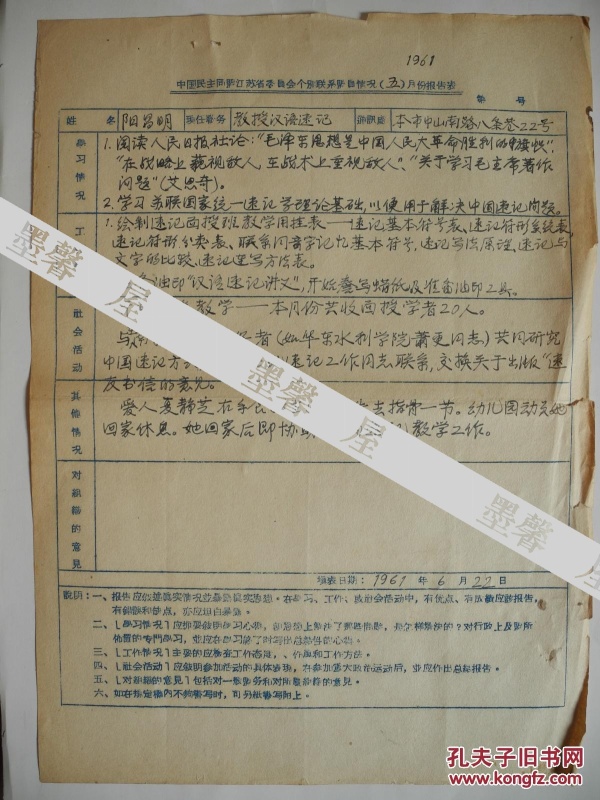 1961
中国民主同盟江苏省委员会个别联系盟员情况(五)月份报告表
编号
姓名 阳昌明 现任职务 教授汉语速记 通讯处 本市中山南路八条巷22号
学习情况
1. 阅读人民日报社论:“毛泽东思想是中国人民大革命胜利的旗帜”、
“在战略上藐视敌人,在战术上重视敌人”、“关于学习毛主席著作
问题”(艾思奇)。
2. 学习苏联国家统一速记学理论基础,以便用于解决中国速记问题。
工
1. 绘制速记函授班教学用挂表——速记基本符号表、速记符形系统表
速记符形分类表、联系同音字记忆基本符号,速记写法原理,速记与
文字的比较、速记连写方法表。
油印“汉语速记讲义”,开始誊写蜡纸及准备油印工具。
教学——本月份共收函授学者20人。
社会活动
者(如华东水利学院萧更同志)共同研究
中国速记方 速记工作同志联系,交换关于出版“速
的意见。
其他情况
爱人夏静芝在 去指骨一节。幼儿园动员她
回家休息。她回家后即协助 教学工作。
对组织的意见
填表日期:1961年6月22日
说明:一、报告应依据真实情况并暴露真实思想。在学习、工作、政社会活动中,有优点、有成绩应该报告,
有错误和缺点,亦应坦白暴露。
二、〔学习情况〕
他盟的专门学习,並应在学习终了时写出总结性的心得。
三、〔工作情况〕主要的应检查工作态度、、作风和工作方法。
四、〔社会活动〕应叙明参加活动的具体表现,在参加重大政治运动后,並应作出总结报告。
五、〔对组织的意见〕包括对一般盟务和对所属组织的意见。
六、如在指定栏内不够书写时,可另纸书写附上。
墨馨屋
墨馨屋
墨馨
孔夫子旧书网
www.kongfz.com